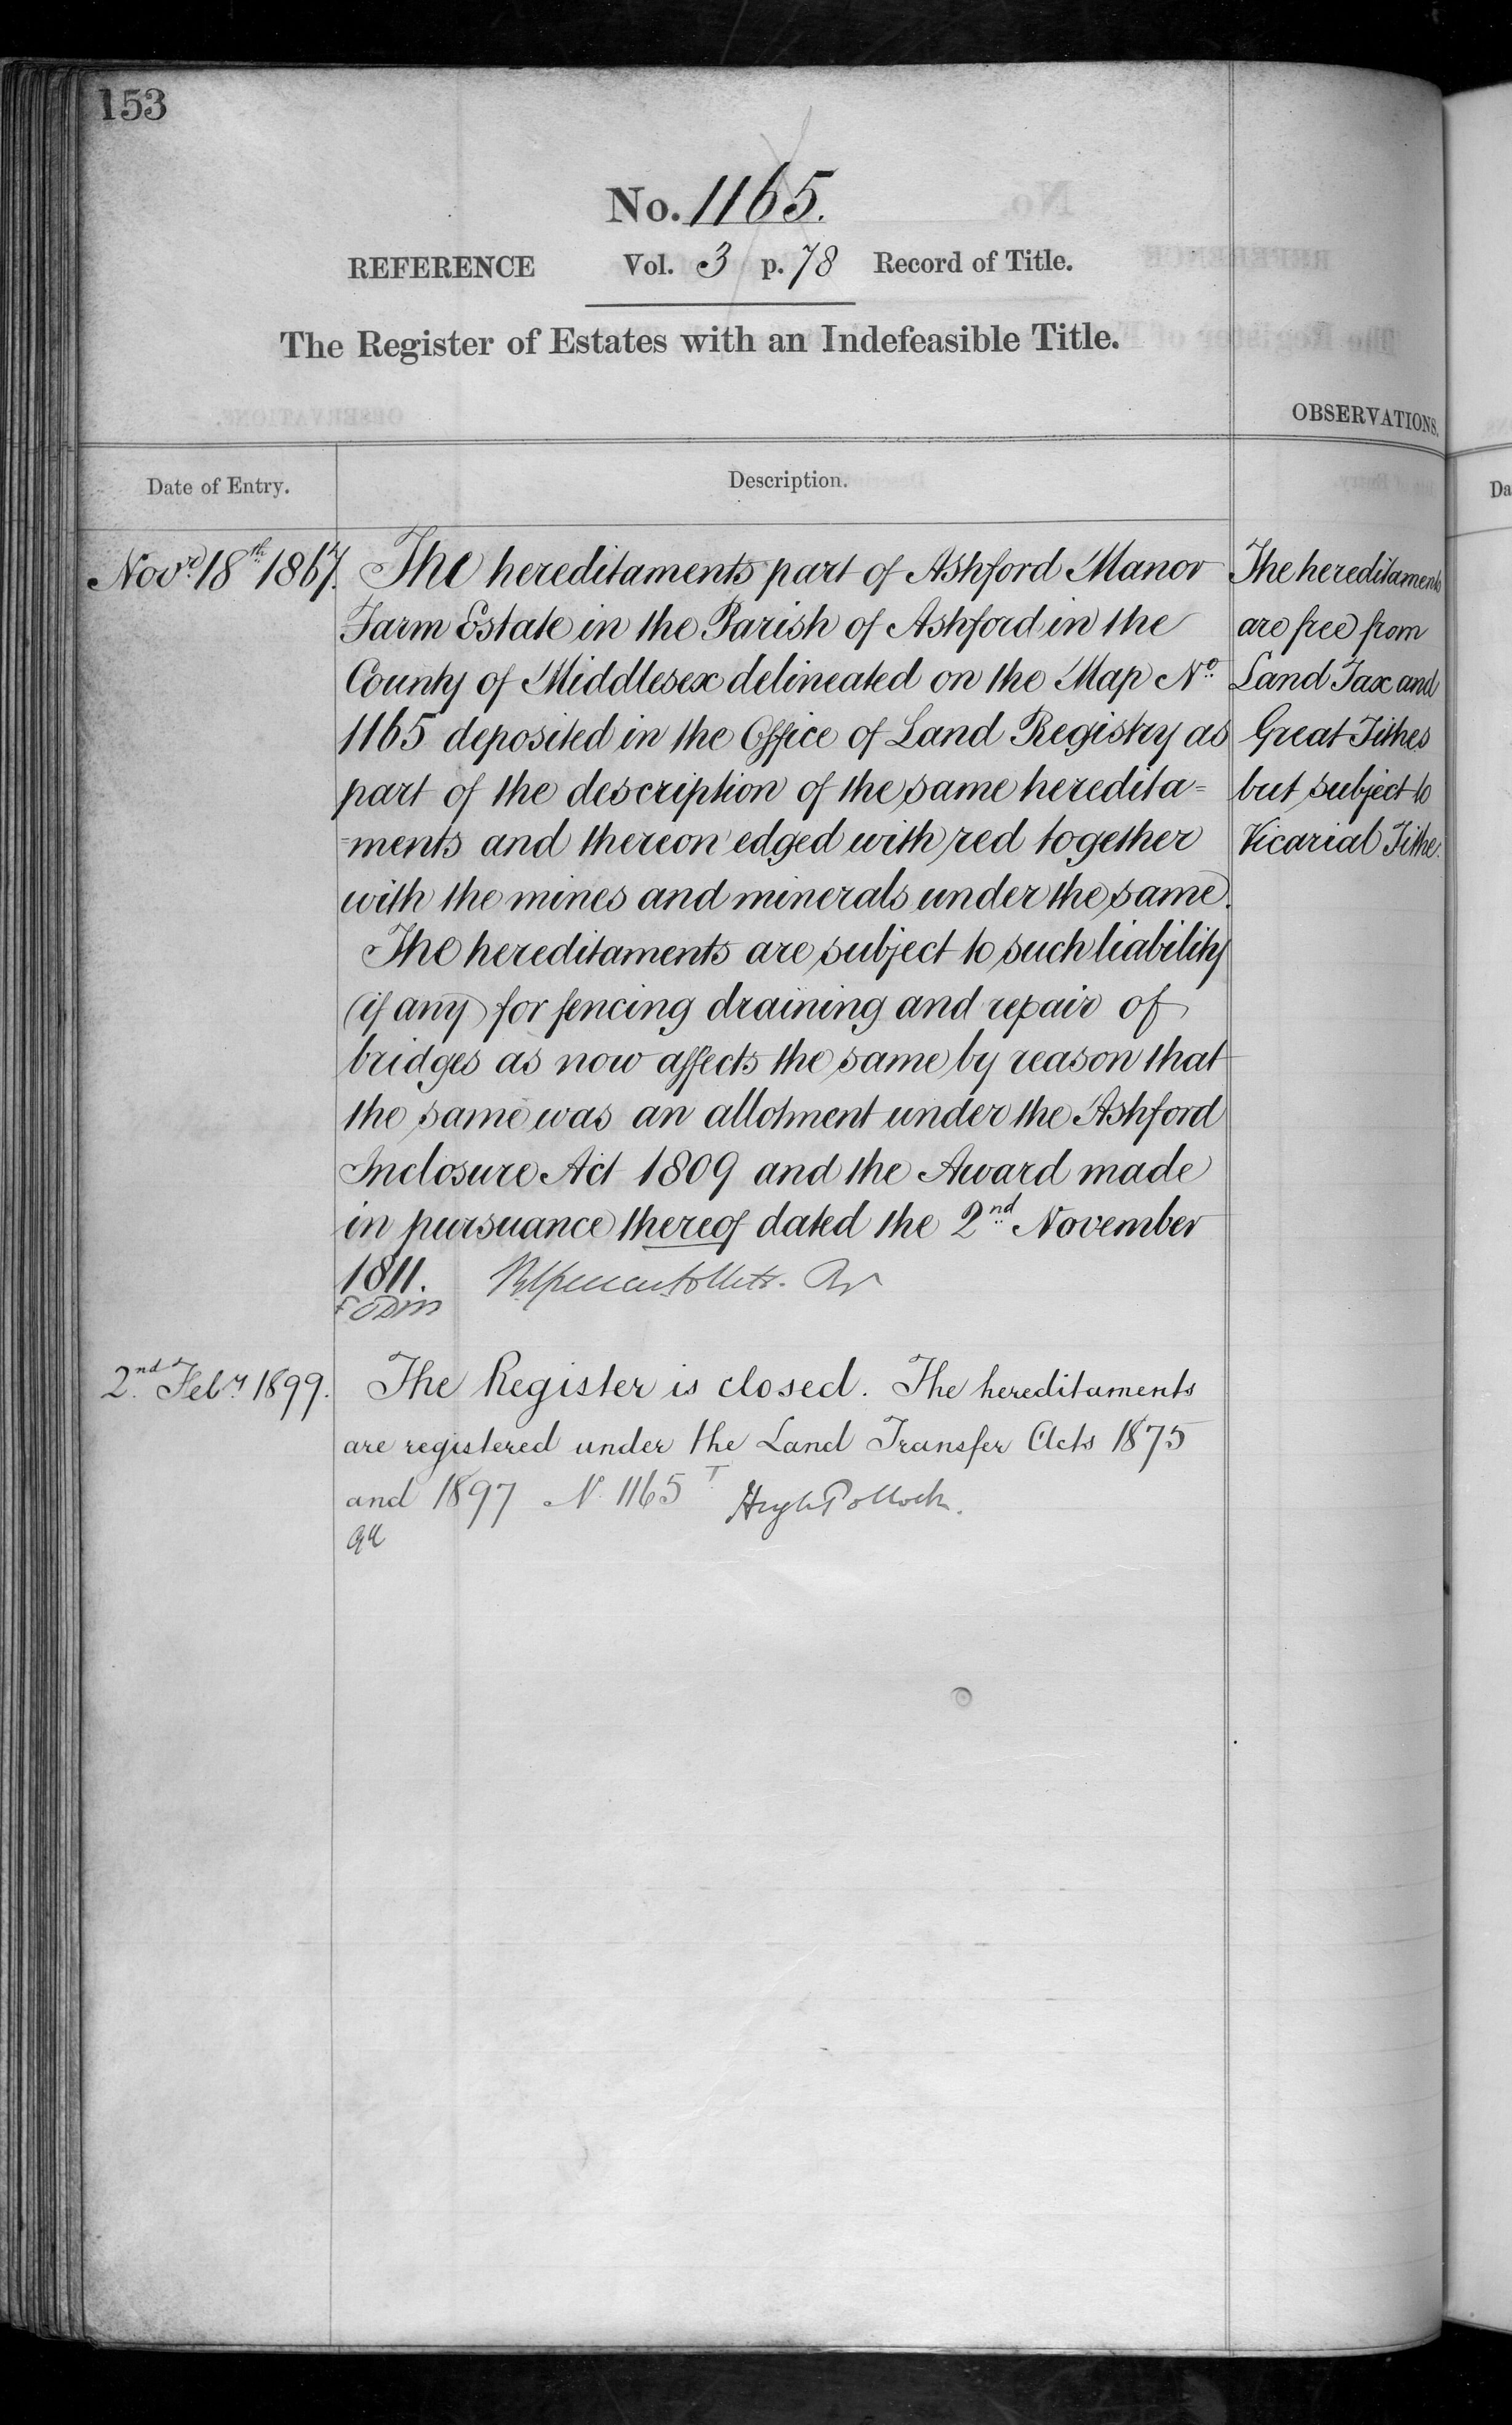 153
No. 1165.
REFERENCE Vol. 3 p. 78 Record of Title.
The Register of Estates with an Indefeasible Title.
OBSERVATIONS.
Date of Entry.
Description.
Novr. 18th. 1867.
The hereditaments part of Ashford Manor
Farm Estate in the Parish of Ashford in the
County of Middlesex delineated on the Map No.
1165 deposited in the Office of Land Registry as
part of the description of the same heredita=
=ments and thereon edged with red together
with the mines and minerals under the same.
The hereditaments are subject to such liability
(if any) for fencing draining and repair of
bridges as now affects the same by reason that
the same was an allotment under the Ashford
Inclosure Act 1809 and the Award made
in pursuance thereof dated the 2nd. November
1811.
The hereditaments
are free from
Land Tax and
Great Tithes
but subject to
Vicarial Tithe.
2nd. Feby 1899.
The Register is closed. The hereditaments
are registered under the Land Transfer Acts 1875
and 1897 N. 1165 T Hugh Pollock.
Da